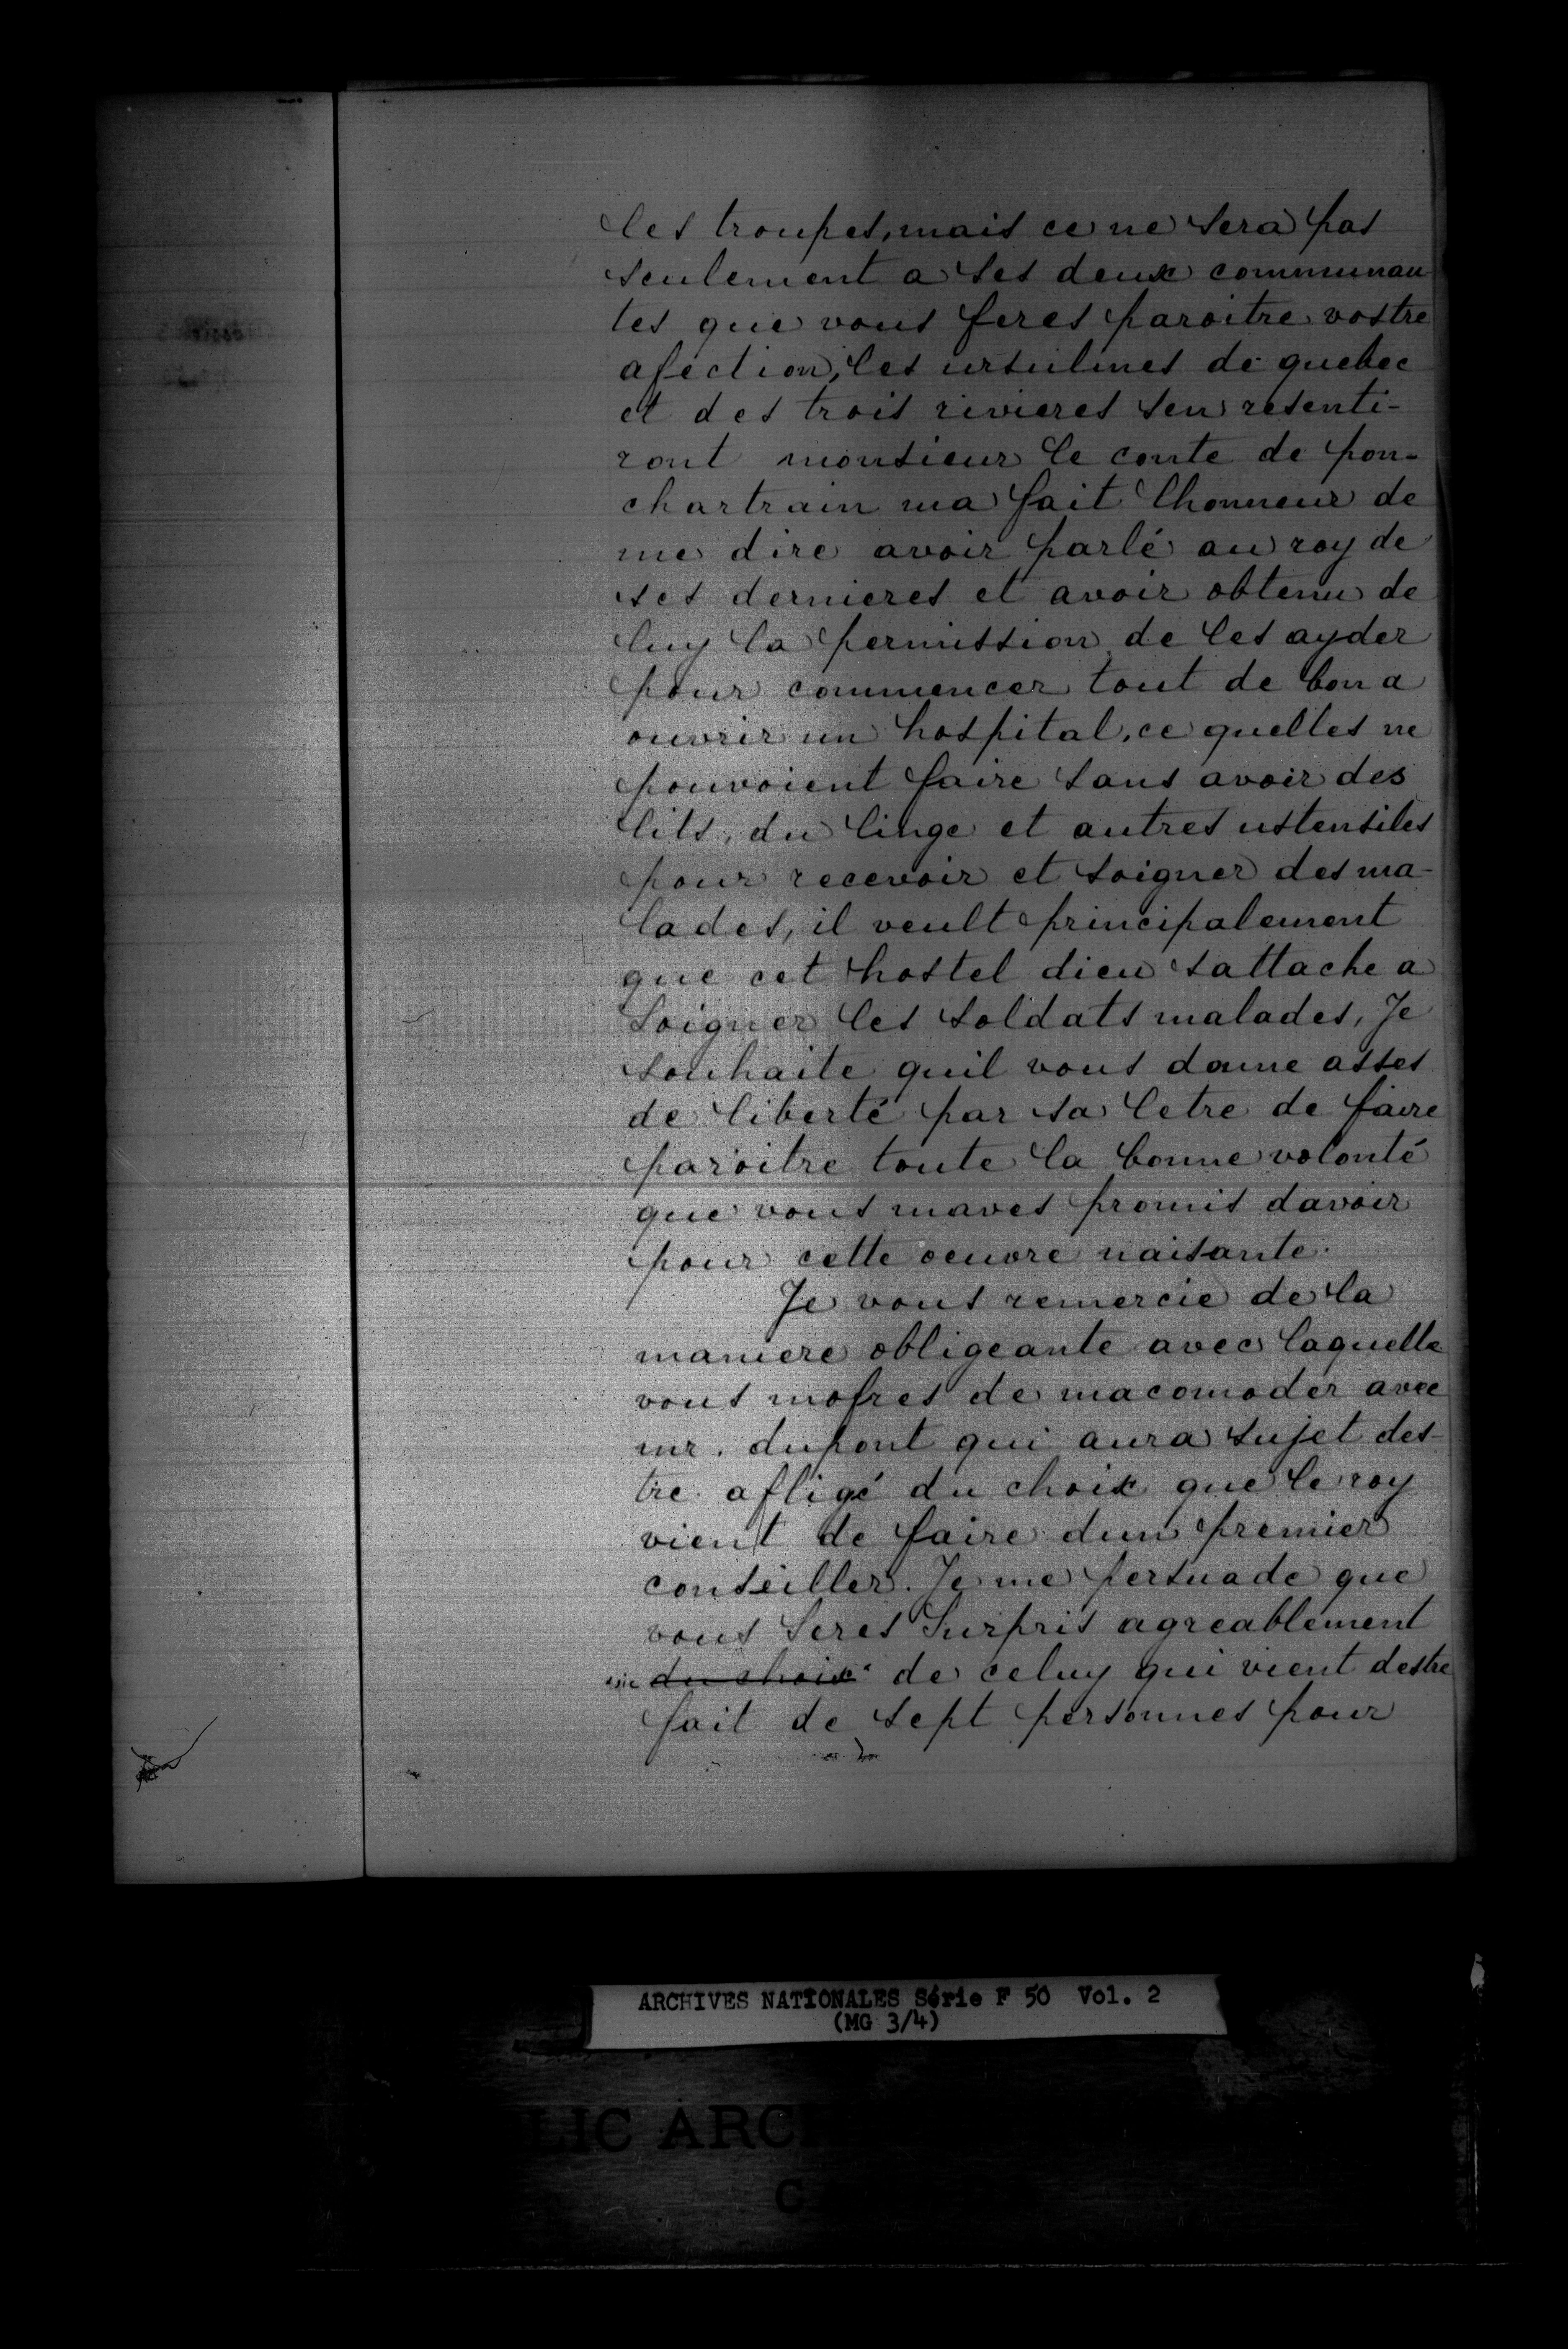 les troupes, mais ce ne sera pas
seulement a ses deux communau
tes que vous feres paroitre vostre
afection, les ursulines de quebec
et des trois rivieres sen resenti-
ront monsieur le conte de pon-
chartrain ma fait lhonneur de
me dire avoir parlé au roy de
ses dernieres et avoir obtenu de
luy la permission de les ayder
pour commencer tout de bon a
ouvrir un hospital, ce quelles ne
pouvoient faire sans avoir des
lits, du linge et autres ustensiles
pour recevoir et soigner des ma-
lades, il veult principalement
que cet hostel dieu sattache a
soigner les soldats malades, Je
souhaite quil vous donne asses
de liberté par sa letre de faire
paroitre toute la bonne volonté
que vous maves promis davoir
pour cette oeuvre naisante.
Je vous remercie de la
maniere obligeante avec laquelle
vous mofres de macomoder avec
mr. dupont qui aura sujet des-
tre afligé du choix que le roy
vient de faire dun premier
conseiller. Je me persuade que
vous seres surpris agreablement
sic du choix de celuy qui vient destre
fait de sept personnes pour
ARCHIVES NATIONALES Série F 50 Vol. 2
(MG 3/4)
LIC ARC
C